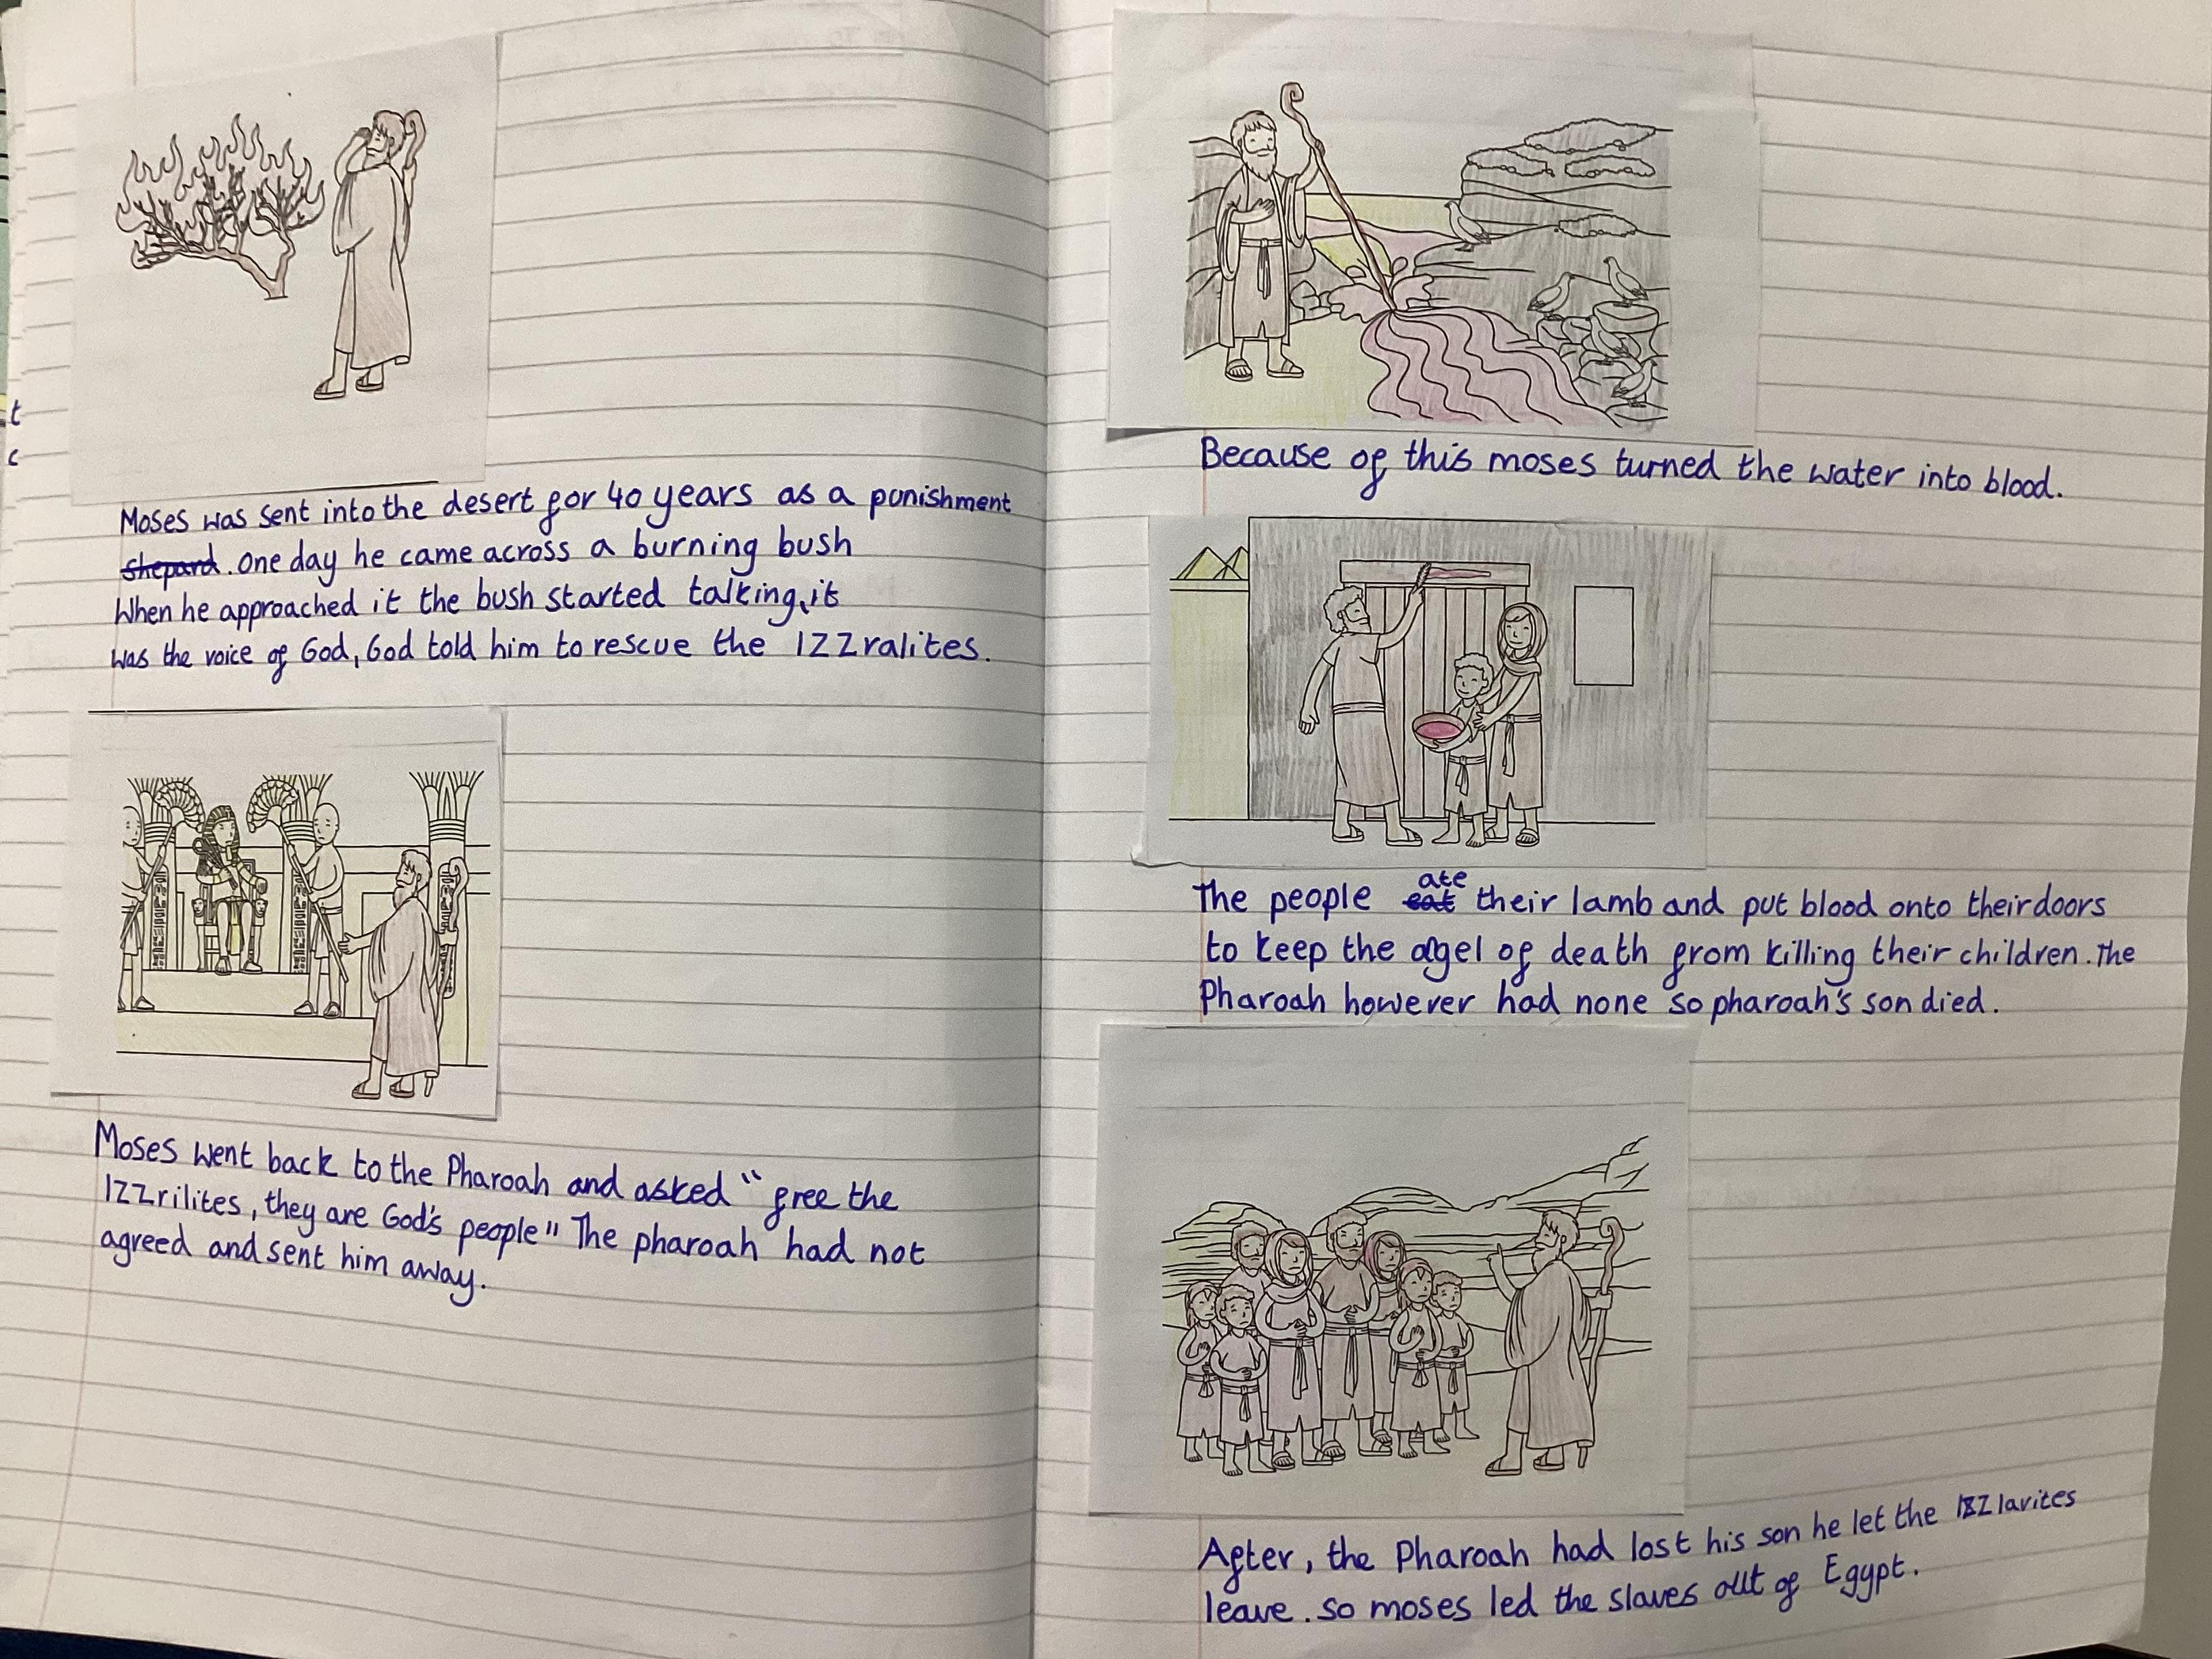 t
c
Moses was sent into the desert for 40 years as a punishment
shepard. one day he came across a burning bush
When he approached it the bush started talking, it
was the voice of God, God told him to rescue the IZZralites.
Moses went back to the Pharoah and asked " free the
IZZrilites, they are God's people" The pharoah had not
agreed and sent him away.
Because of this moses turned the water into blood.
The people eat ate their lamb and put blood onto their doors
to keep the agel of death from killing their children. The
Pharoah however had none so pharoah's son died.
After, the Pharoah had lost his son he let the IZZlavites
leave. so moses led the slaves out of Egypt.